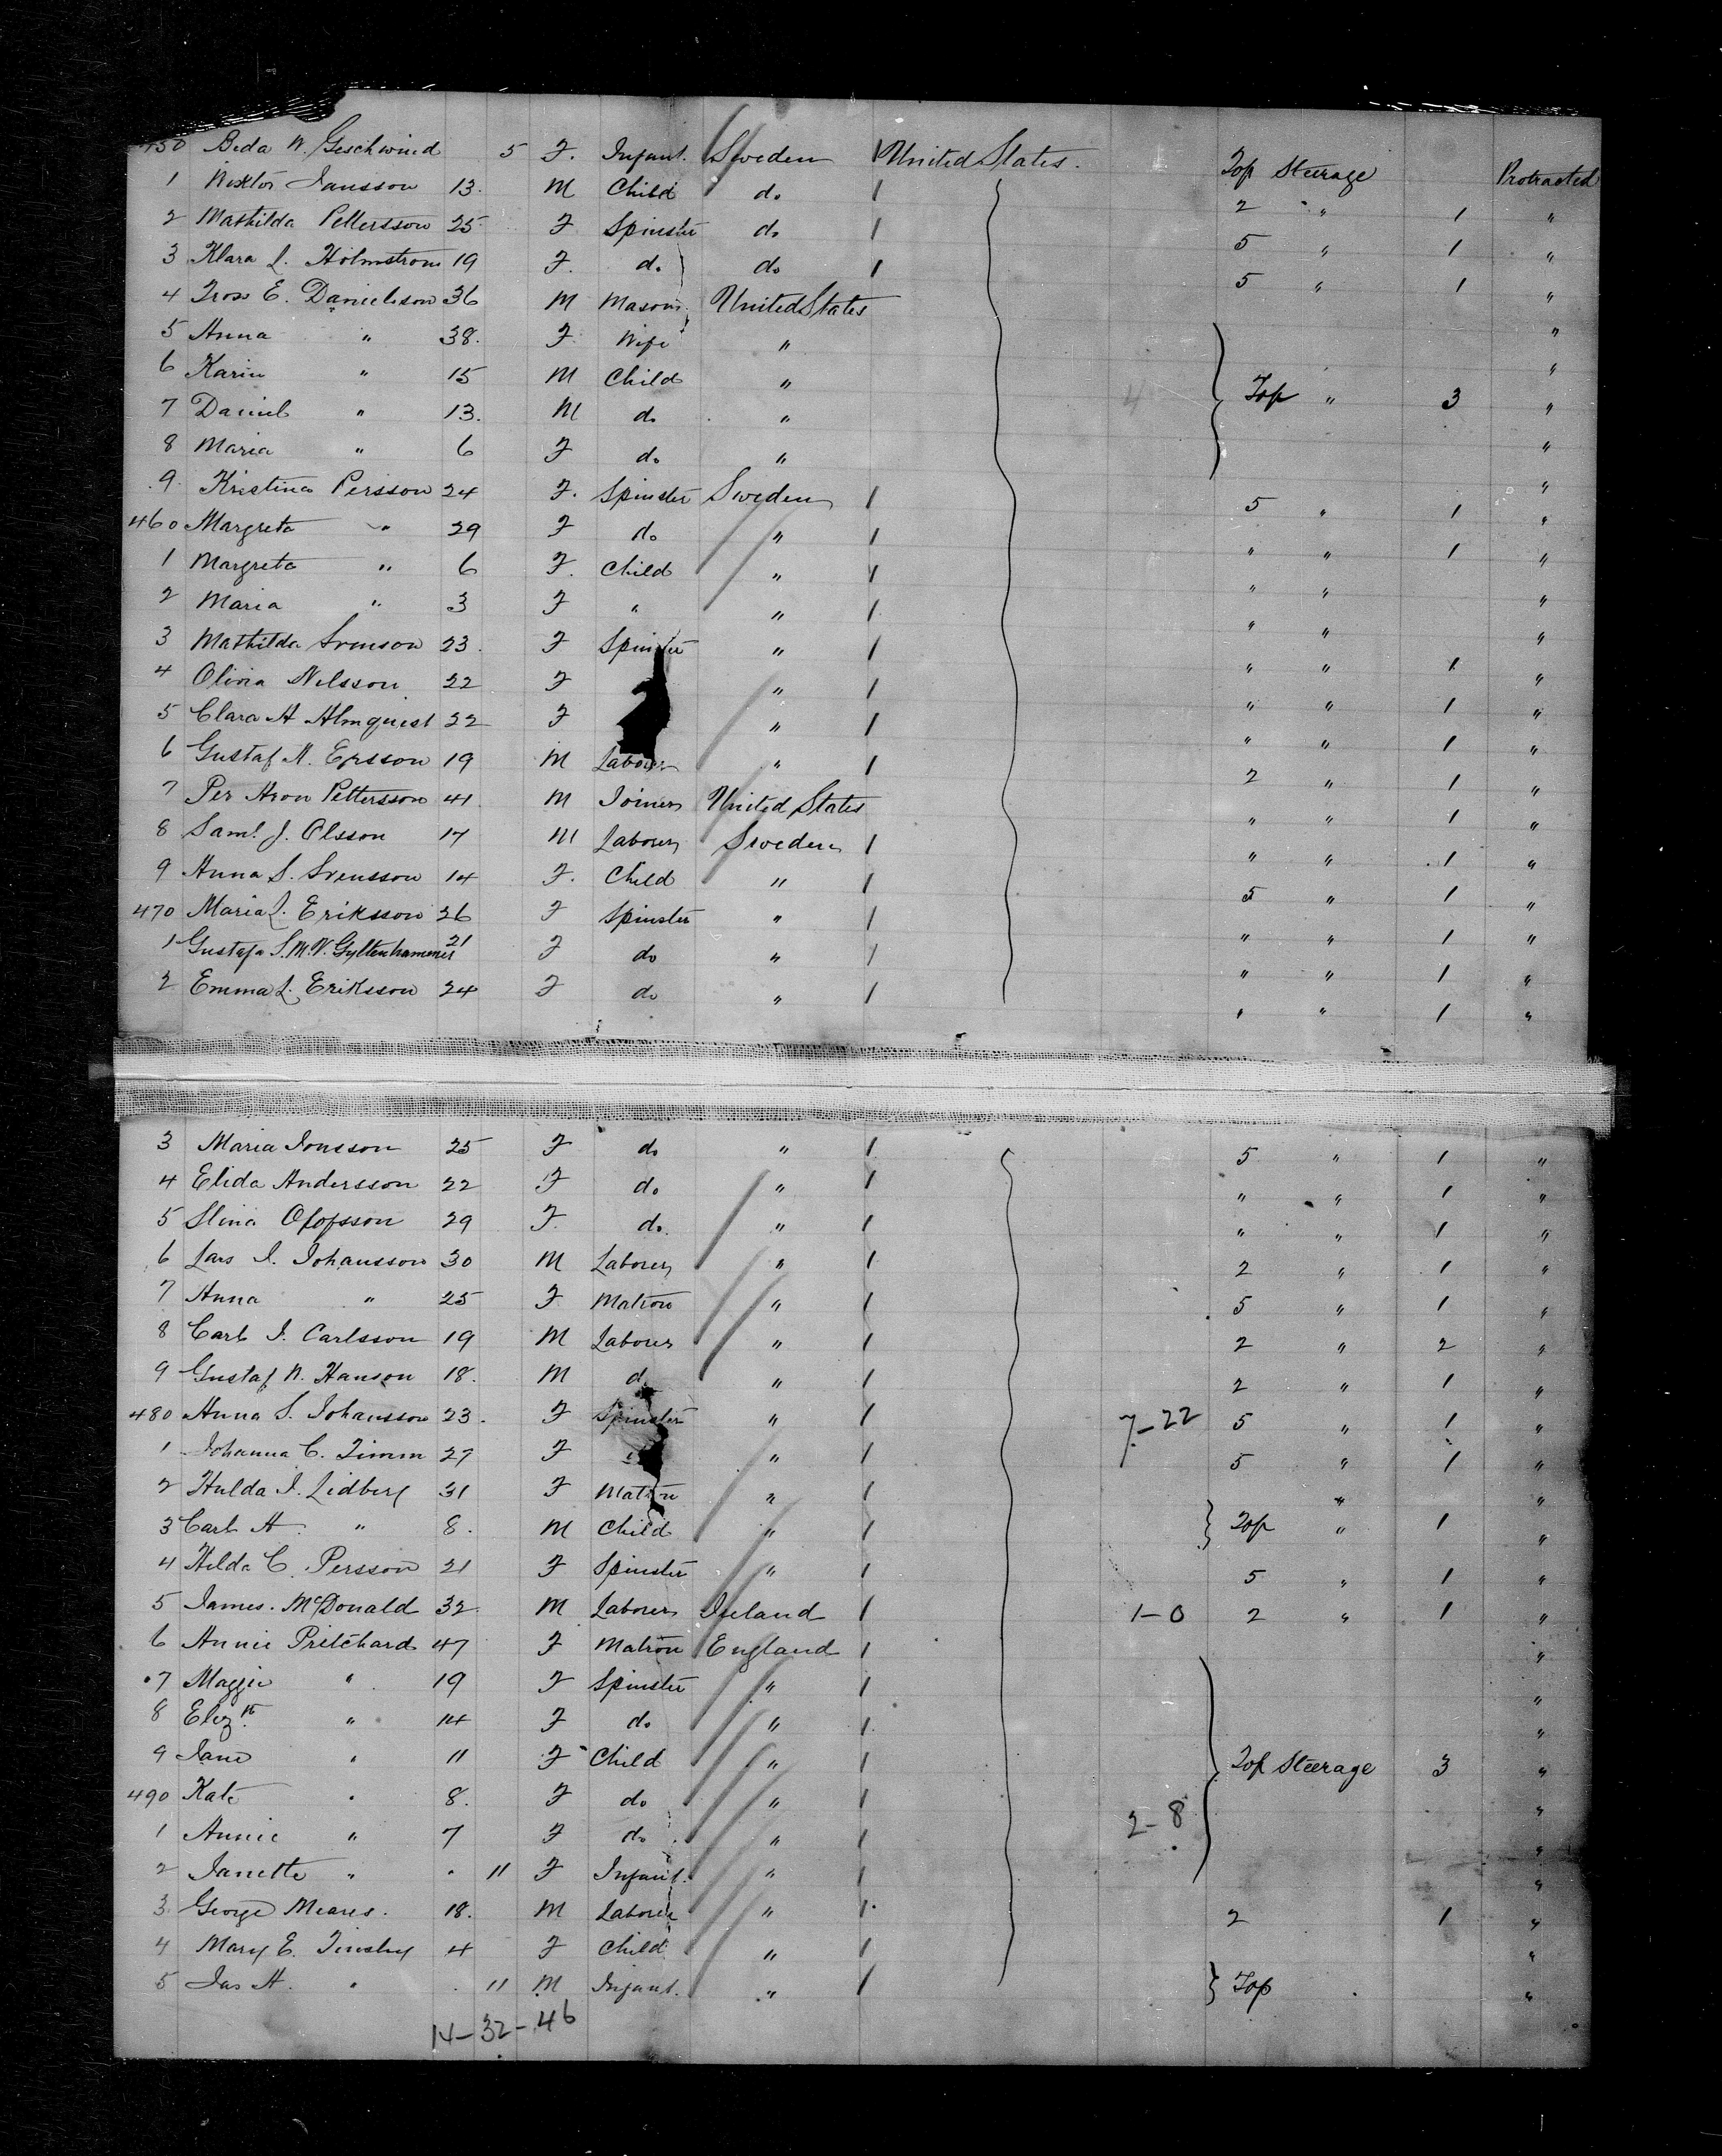 450 Beda W. Geschwind 5 F. Infant. Sweden 1 United States. Top Steerage Protracted
1 Wiktor Jansson 13. M Child do 1 2 " 1 "
2 Mathilda Pettersson 25 F Spinster do 1 5 " 1 "
3 Klara L. Holmstrom 19 F. do do 1 5 " 1 "
4 E. Danielsson 36 M Mason United States "
5 Anna " 38. F Wife " "
6 Karin " 15 M Child " Top " 3 "
7 Daniel " 13. M do " "
8 Maria " 6 F do " "
9 Kristina Persson 24 F. Spinster Sweden 1 5 " 1 "
460 Margreta " 29 F do " 1 " " 1 "
1 Margreta " 6 F. Child " 1 " " "
2 Maria " 3 F " " 1 " " "
3 Mathilda Svenson 23. F Spinster " 1 " " 1 "
4 Olivia Nilsson 22 F " 1 " " 1 "
5 Clara A Almquist 22 F " 1 " " 1 "
6 Gustaf A. Ersson 19 M Laborer " 1 2 " 1 "
7 Per Aron Pettersson 41 M Joiner United States " " 1 "
8 Saml. J. Olsson 17 M Laborer Sweden 1 " " 1 "
9 Anna S. Svensson 14 F. Child " 1 5 " 1 "
470 Maria L. Eriksson 26 F Spinster " 1 " " 1 "
1 Gustafa S.M.V. Gyltenhammer 21 F do " 1 " " 1 "
2 Emma L. Eriksson 24 F do " 1 " " 1 "
3 Maria Jonsson 25 F do " 1 5 " 1 "
4 Elida Andersson 22 F do " 1 " " 1 "
5 Stina Olofsson 29 F. do. " 1 " " 1 "
6 Lars J. Johansson 30 M Laborer " 1 2 " 1 "
7 Anna " 25 F Matron " 1 5 " 1 "
8 Carl J. Carlsson 19 M Laborer " 1 2 " 2 "
9 Gustaf W. Hanson 18. M do " 1 2 " 1 "
480 Anna S. Johansson 23. F Spinster " 1 7-22 5 " 1 "
1 Johanna C. Timm 27 F " 1 5 " 1 "
2 Hulda J. Lidberg 31 F Matron " 1 " "
3 Carl A. " 8. M Child " 1 Top " 1 "
4 Hilda C. Persson 21 F Spinster " 1 5 " 1 "
5 James. McDonald 32. M Laborer Ireland 1 1-0 2 " 1 "
6 Annie Pritchard 47 F Matron England 1 "
7 Maggie " 19 F Spinster " 1 "
8 Elizth. " 14 F do " 1 "
9 Jane " 11 F Child " 1 Top Steerage 3 "
490 Kate " 8. F do " 1 "
1 Annie " 7 F do " 1 2-8 "
2 Janette " 11 F Infant. " 1 "
3. George Meares. 18. M Laborer " 1 2 1 "
4 Mary E. Tinsley 4 F Child " 1 "
5 Jas H. " 11 M Infant. " 1 Top "
14-32-46